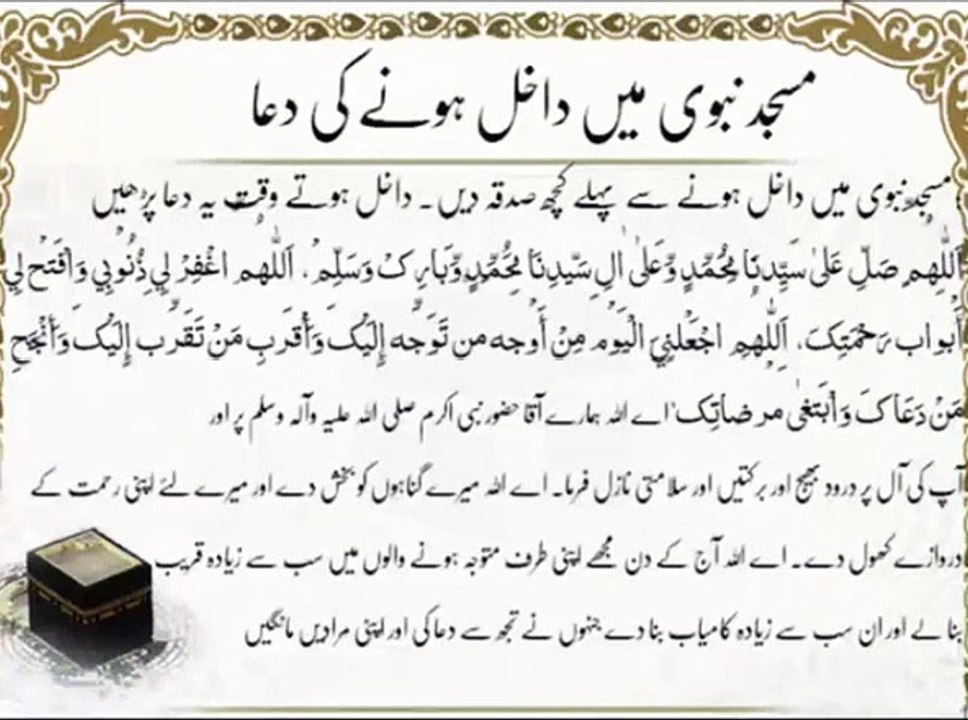 مسجد نبوی میں داخل ہونے کی دعا
مسجد نبوی میں داخل ہونے سے پہلے کچھ صدقہ دیں۔ داخل ہوتے وقت یہ دعا پڑھیں
اَللّٰهم صَلِّ عَلیٰ سَیِّدِنَا مُحَمَّدٍ وَّعَلیٰ اٰلِ سَیِّدِنَا مُحَمَّدٍ وَّبَارِک وَسَلِّم، اَللّٰهم اغْفِرْ لِي ذُنُوْبِي وَافْتَحْ لِي
أَبواب رَحْمَتِکَ، اَللّٰهم اجْعَلْنِيَ الْيَوْم مِنْ أَوجه من تَوَجَّه إِلَيْکَ وَأَقْرَبِ مَنْ تَقَرَّبَ إِلَيْکَ وَأَنْجَحِ
مَنْ دَعَاکَ وَابْتَغىٰ مرضاتِک اے اللہ ہمارے آقا حضور نبی اکرم صلی اللہ علیہ وآلہ وسلم پر اور
آپ کی آل پر درود بھیج اور برکتیں اور سلامتی نازل فرما۔ اے اللہ میرے گناہوں کو بخش دے اور میرے لئے اپنی رحمت کے
دروازے کھول دے۔ اے اللہ آج کے دن مجھے اپنی طرف متوجہ ہونے والوں میں سب سے زیادہ قریب
بنا لے اور ان سب سے زیادہ کامیاب بنا دے جنہوں نے تجھ سے دعا کی اور اپنی مرادیں مانگیں